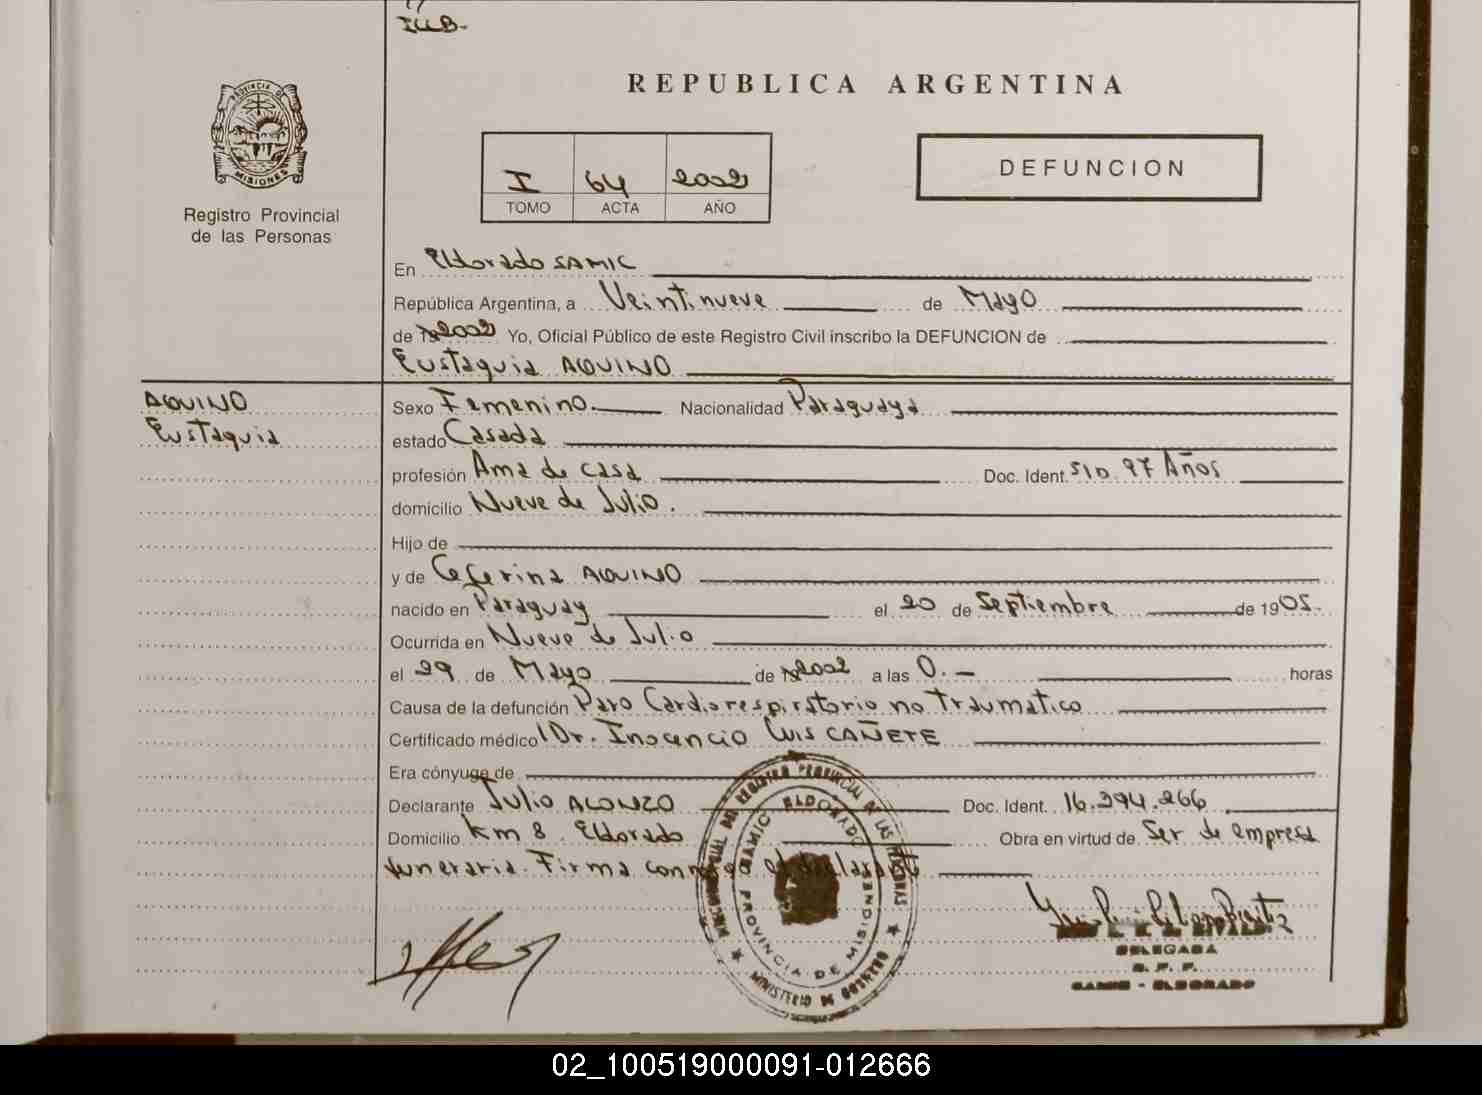 REPUBLICA ARGENTINA
PROVINCIA DE
MISIONES
Registro Provincial
de las Personas
I 64 2002
TOMO ACTA AÑO
DEFUNCION
En Eldorado SAMIC
República Argentina, a Veintinueve de Mayo
de 2002 Yo, Oficial Público de este Registro Civil inscribo la DEFUNCION de
Eustaquia AQUINO
AQUINO
Eustaquia
Sexo Femenino. Nacionalidad Paraguaya
estado Casada
profesión Ama de casa Doc. Ident. S/D. 97 Años
domicilio Nueve de Julio.
Hijo de
y de Ceferina AQUINO
nacido en Paraguay el 20 de Septiembre de 1905.
Ocurrida en Nueve de Julio
el 29 de Mayo de 2002 a las 0.- horas
Causa de la defunción Paro Cardiorespiratorio no Traumatico
Certificado médico Dr. Inocencio Luis CAÑETE
Era cónyuge de
Declarante Julio ALONZO Doc. Ident. 16.394.266
Domicilio Km 8 Eldorado Obra en virtud de Ser de empresa
funeraria. Firma conmigo el declarante
DIRECCION GRAL DEL REGISTRO PROVINCIAL DE LAS PERSONAS
SAMIC ELDORADO
PROVINCIA DE MISIONES
MINISTERIO DE GOBIERNO
DELEGADA
SAMIC - ELDORADO
02_100519000091-012666